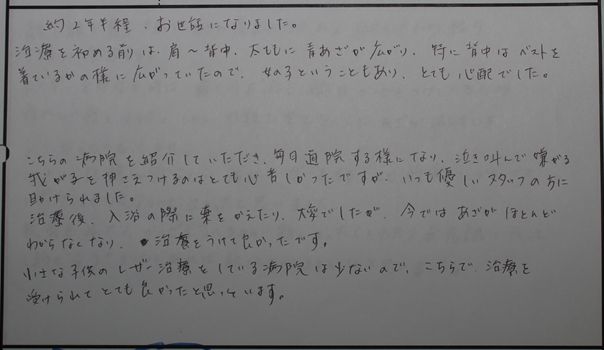 約2年半程、お世話になりました。
治療を初める前は、肩〜背中、太ももに青あざが広がり、特に背中はベストを
着ているかの様に広がっていたので、女の子ということもあり、とても心配でした。
こちらの病院を紹介していただき、毎日通院する様になり、泣き叫んで嫌がる
我が子を押さえつけるのはとても心苦しかったですが、いつも優しいスタッフの方に
助けられました。
治療後、入浴の際に薬をかえたり、大変でしたが、今ではあざがほとんど
わからなくなり、治療をうけて良かったです。
小さな子供のレーザー治療をしている病院は少ないので、こちらで治療を
受けられてとても良かったと思っています。